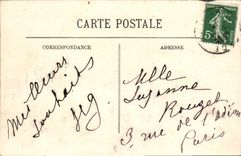 CARTE POSTALE
CORRESPONDANCE
ADRESSE
Meilleurs
souhaits
Mlle
Suzanne
Rouzel
3, rue de l'
Paris
5